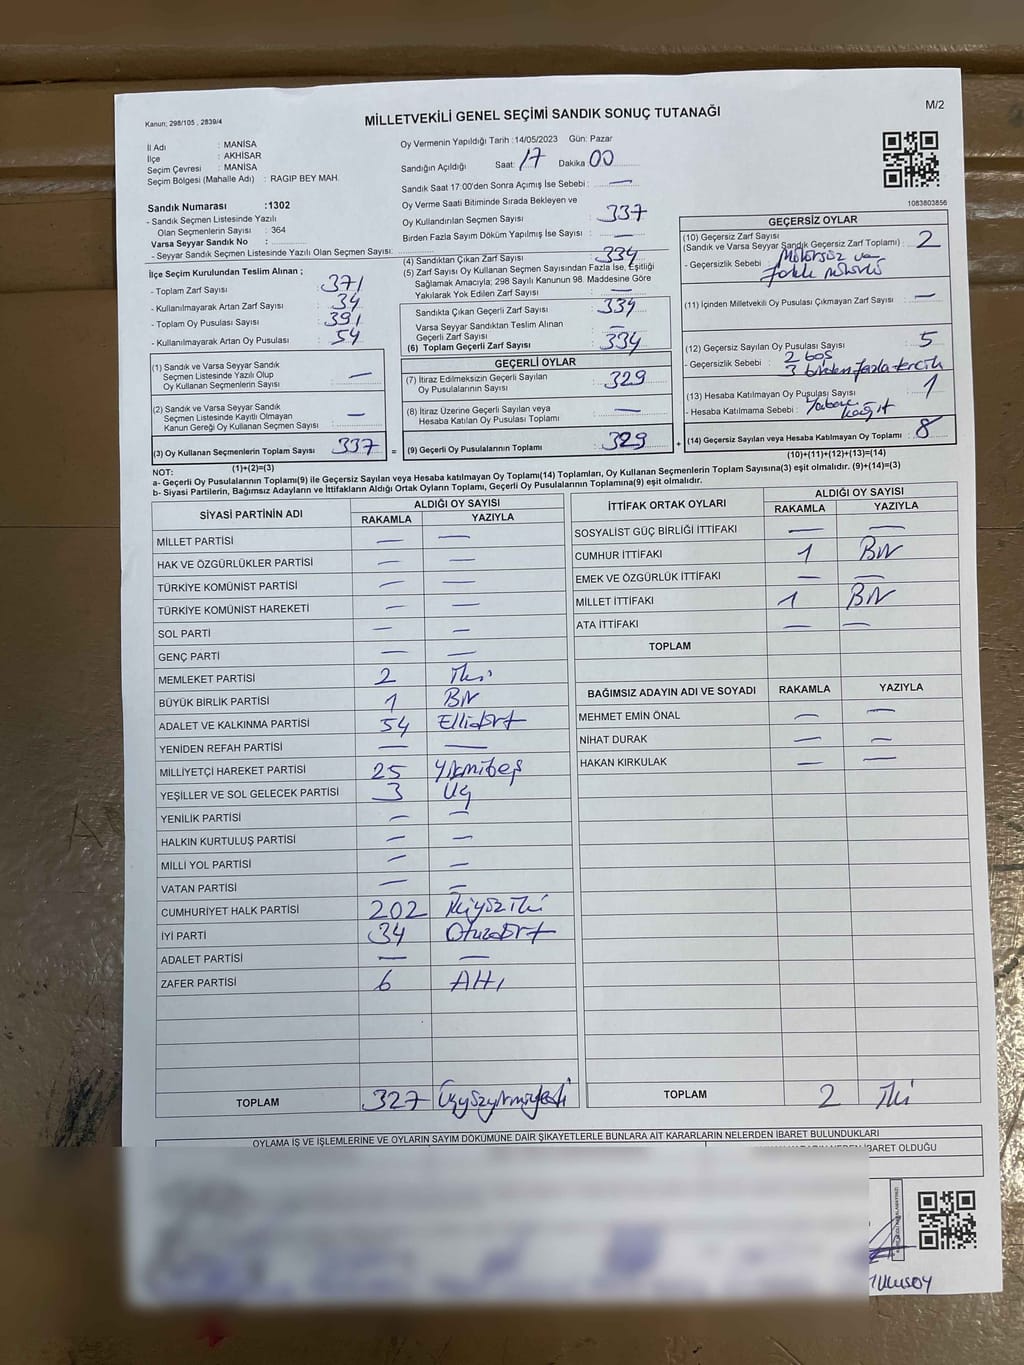 M/2
Kanun; 298/105 , 2839/4
MİLLETVEKİLİ GENEL SEÇİMİ SANDIK SONUÇ TUTANAĞI
İl Adı : MANİSA
İlçe : AKHİSAR
Seçim Çevresi : MANİSA
Seçim Bölgesi (Mahalle Adı) : RAGIP BEY MAH.
Sandık Numarası :1302
- Sandık Seçmen Listesinde Yazılı
Olan Seçmenlerin Sayısı : 364
Varsa Seyyar Sandık No :
- Seyyar Sandık Seçmen Listesinde Yazılı Olan Seçmen Sayısı:
İlçe Seçim Kurulundan Teslim Alınan ;
- Toplam Zarf Sayısı : 371
- Kullanılmayarak Artan Zarf Sayısı : 34
- Toplam Oy Pusulası Sayısı : 391
- Kullanılmayarak Artan Oy Pusulası : 54
(1) Sandık ve Varsa Seyyar Sandık
Seçmen Listesinde Yazılı Olup
Oy Kullanan Seçmenlerin Sayısı : —
(2) Sandık ve Varsa Seyyar Sandık
Seçmen Listesinde Kayıtlı Olmayan
Kanun Gereği Oy Kullanan Seçmen Sayısı : —
(3) Oy Kullanan Seçmenlerin Toplam Sayısı 337 =
(1)+(2)=(3)
Oy Vermenin Yapıldığı Tarih :14/05/2023 Gün: Pazar
Sandığın Açıldığı Saat: 17 Dakika 00
Sandık Saat 17:00'den Sonra Açımış İse Sebebi : —
Oy Verme Saati Bitiminde Sırada Bekleyen ve
Oy Kullandırılan Seçmen Sayısı : 337
Birden Fazla Sayım Döküm Yapılmış İse Sayısı : —
(4) Sandıktan Çıkan Zarf Sayısı : 334
(5) Zarf Sayısı Oy Kullanan Seçmen Sayısından Fazla İse, Eşitliği
Sağlamak Amacıyla; 298 Sayılı Kanunun 98. Maddesine Göre
Yakılarak Yok Edilen Zarf Sayısı : —
Sandıkta Çıkan Geçerli Zarf Sayısı : 334
Varsa Seyyar Sandıktan Teslim Alınan
Geçerli Zarf Sayısı : —
(6) Toplam Geçerli Zarf Sayısı : 334
GEÇERLİ OYLAR
(7) İtiraz Edilmeksizin Geçerli Sayılan
Oy Pusulalarının Sayısı : 329
(8) İtiraz Üzerine Geçerli Sayılan veya
Hesaba Katılan Oy Pusulası Toplamı : —
(9) Geçerli Oy Pusulalarının Toplamı : 329 +
1083803856
GEÇERSİZ OYLAR
(10) Geçersiz Zarf Sayısı
(Sandık ve Varsa Seyyar Sandık Geçersiz Zarf Toplamı) : 2
- Geçersizlik Sebebi : Mühürsüz ve
farklı mühürlü
(11) İçinden Milletvekili Oy Pusulası Çıkmayan Zarf Sayısı : —
(12) Geçersiz Sayılan Oy Pusulası Sayısı : 5
- Geçersizlik Sebebi : 2 boş
3 birden fazla tercih
(13) Hesaba Katılmayan Oy Pusulası Sayısı : 1
- Hesaba Katılmama Sebebi : Yabancı
kağıt
(14) Geçersiz Sayılan veya Hesaba Katılmayan Oy Toplamı : 8
(10)+(11)+(12)+(13)=(14)
NOT:
a- Geçerli Oy Pusulaları Toplamı(9) ile Geçersiz Sayılan veya Hesaba katılmayan Oy Toplamı(14) Toplamları, Oy Kullanan Seçmenlerin Toplam Sayısına(3) eşit olmalıdır. (9)+(14)=(3)
b- Siyasi Partilerin, Bağımsız Adayların ve İttifakların Aldığı Ortak Oyların Toplamı, Geçerli Oy Pusulalarının Toplamına(9) eşit olmalıdır.
SİYASİ PARTİNİN ADI ALDIĞI OY SAYISI
RAKAMLA YAZIYLA
MİLLET PARTİSİ — —
HAK VE ÖZGÜRLÜKLER PARTİSİ — —
TÜRKİYE KOMÜNİST PARTİSİ — —
TÜRKİYE KOMÜNİST HAREKETİ — —
SOL PARTİ — —
GENÇ PARTİ — —
MEMLEKET PARTİSİ 2 İki
BÜYÜK BİRLİK PARTİSİ 1 Bir
ADALET VE KALKINMA PARTİSİ 54 Ellidört
YENİDEN REFAH PARTİSİ — —
MİLLİYETÇİ HAREKET PARTİSİ 25 Yirmibeş
YEŞİLLER VE SOL GELECEK PARTİSİ 3 Üç
YENİLİK PARTİSİ — —
HALKIN KURTULUŞ PARTİSİ — —
MİLLİ YOL PARTİSİ — —
VATAN PARTİSİ — —
CUMHURİYET HALK PARTİSİ 202 İkiyüziki
İYİ PARTİ 34 Otuzdört
ADALET PARTİSİ — —
ZAFER PARTİSİ 6 Altı
TOPLAM 327 Üçyüzyirmiyedi
İTTİFAK ORTAK OYLARI ALDIĞI OY SAYISI
RAKAMLA YAZIYLA
SOSYALİST GÜÇ BİRLİĞİ İTTİFAKI — —
CUMHUR İTTİFAKI 1 Bir
EMEK VE ÖZGÜRLÜK İTTİFAKI — —
MİLLET İTTİFAKI 1 Bir
ATA İTTİFAKI — —
TOPLAM
BAĞIMSIZ ADAYIN ADI VE SOYADI RAKAMLA YAZIYLA
MEHMET EMİN ÖNAL — —
NİHAT DURAK — —
HAKAN KIRKULAK — —
TOPLAM 2 İki
OYLAMA İŞ VE İŞLEMLERİNE VE OYLARIN SAYIM DÖKÜMÜNE DAİR ŞİKAYETLERLE BUNLARA AİT KARARLARIN NELERDEN İBARET BULUNDUKLARI
İBARET OLDUĞU
ULUSOY